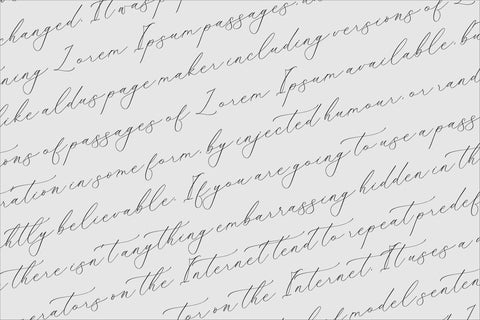 changed. It was p
ning Lorem Ipsum passages, an
like aldus page maker including versions of
ons of passages of Lorem Ipsum available, bu
ration in some form, by injected humour, or rand
ghtly believable. If you are going to use a pass
there isn't anything embarrassing hidden in th
erators on the Internet tend to repeat predef
tor on the Internet. It uses a
of model senten